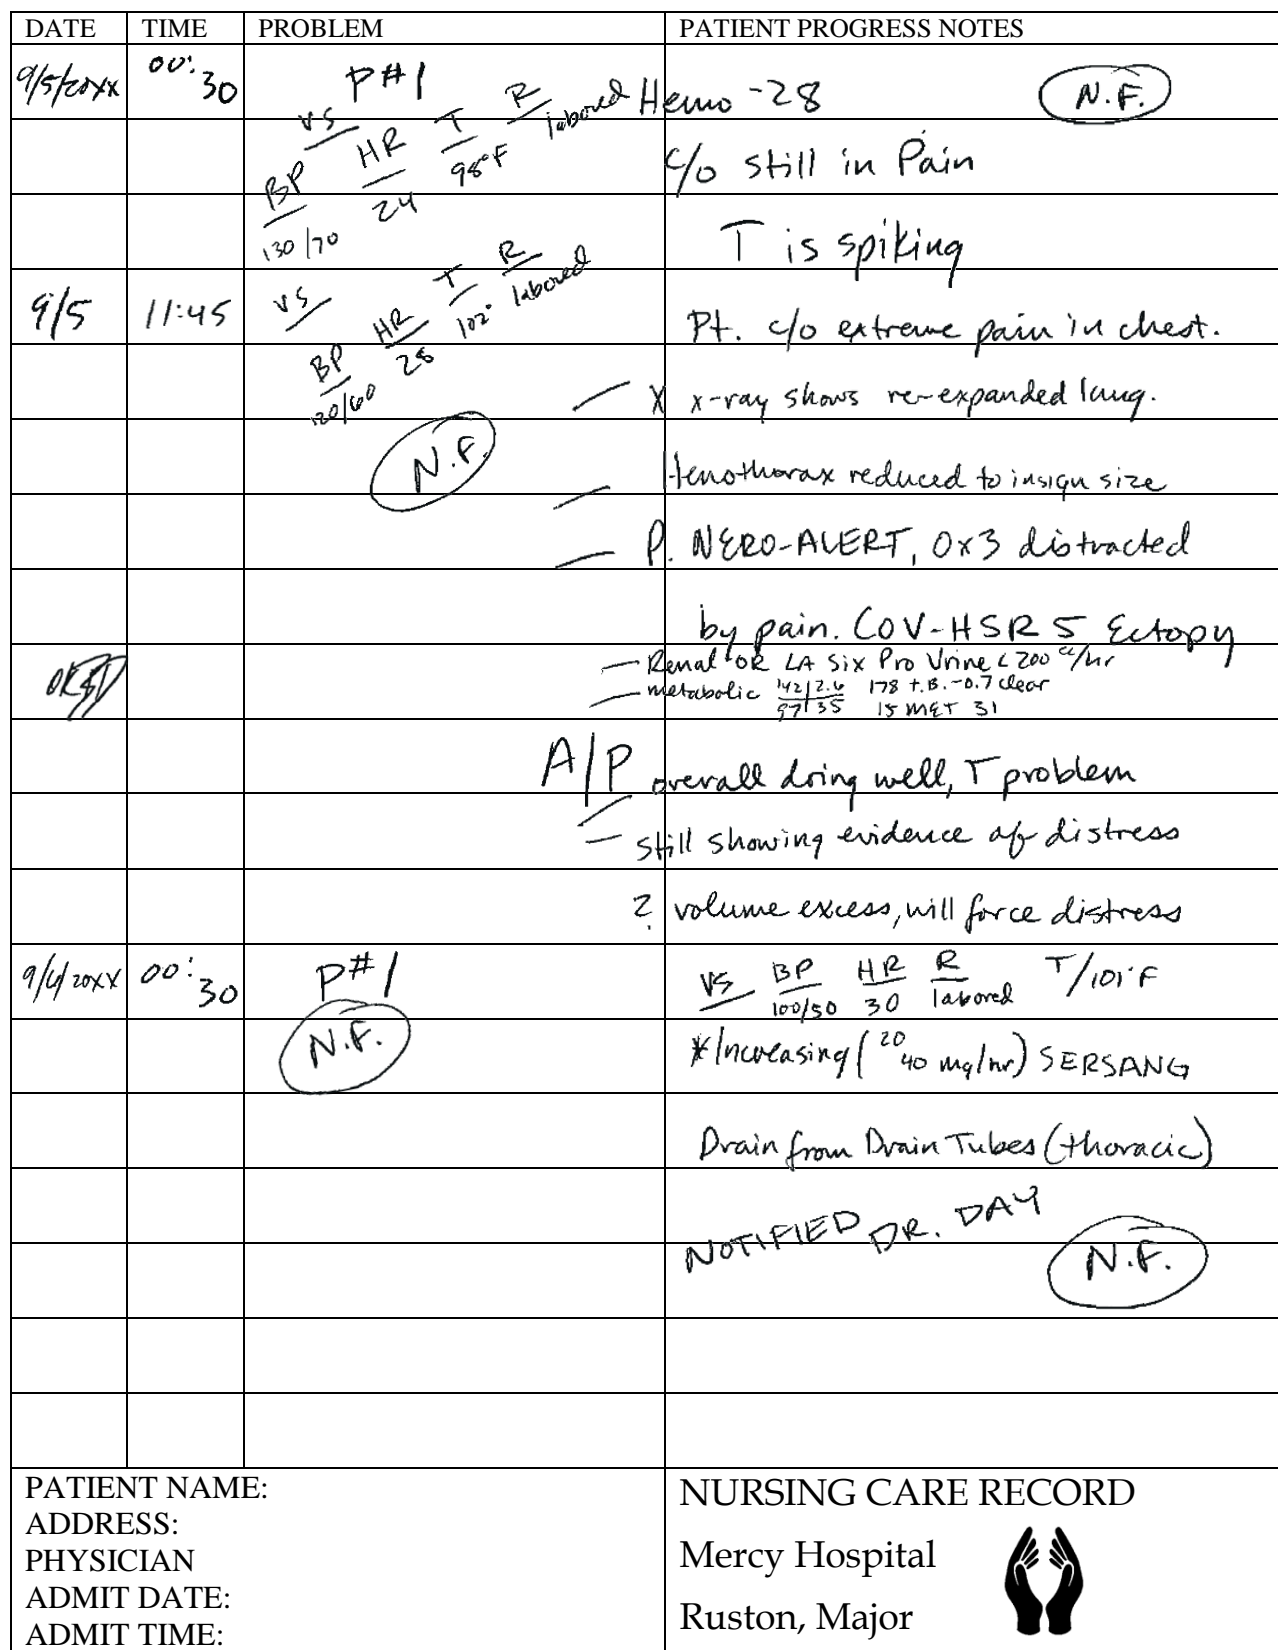 DATE TIME PROBLEM PATIENT PROGRESS NOTES
9/5/20xx 00:30 P#1 Hemo -28 N.F.
VS BP 130/70 HR 24 T 98°F R labored
c/o still in Pain
T is spiking
9/5 11:45 Pt. c/o extreme pain in chest.
VS BP 120/60 HR 28 T 102° R labored
— X x-ray shows re-expanded lung.
N.F.
— Hemothorax reduced to insign size
— P. NERO-ALERT, 0x3 distracted
by pain. COV-HSR 5 Ectopy
— Renal OR LA Six Pro Urine < 200 cc/hr
— metabolic 142|2.6 178 t.B. -0.7 clear
97|35 15 MET 31
A/P overall doing well, T problem
— still showing evidence of distress
? volume excess, will force distress
9/6/20xx 00:30 P#1 VS BP 100/50 HR 30 R labored T/101°F
N.F.
*Increasing (20 40 mg/hr) SERSANG
Drain from Drain Tubes (thoracic)
NOTIFIED DR. DAY
N.F.
PATIENT NAME:
ADDRESS:
PHYSICIAN
ADMIT DATE:
ADMIT TIME:
NURSING CARE RECORD
Mercy Hospital
Ruston, Major